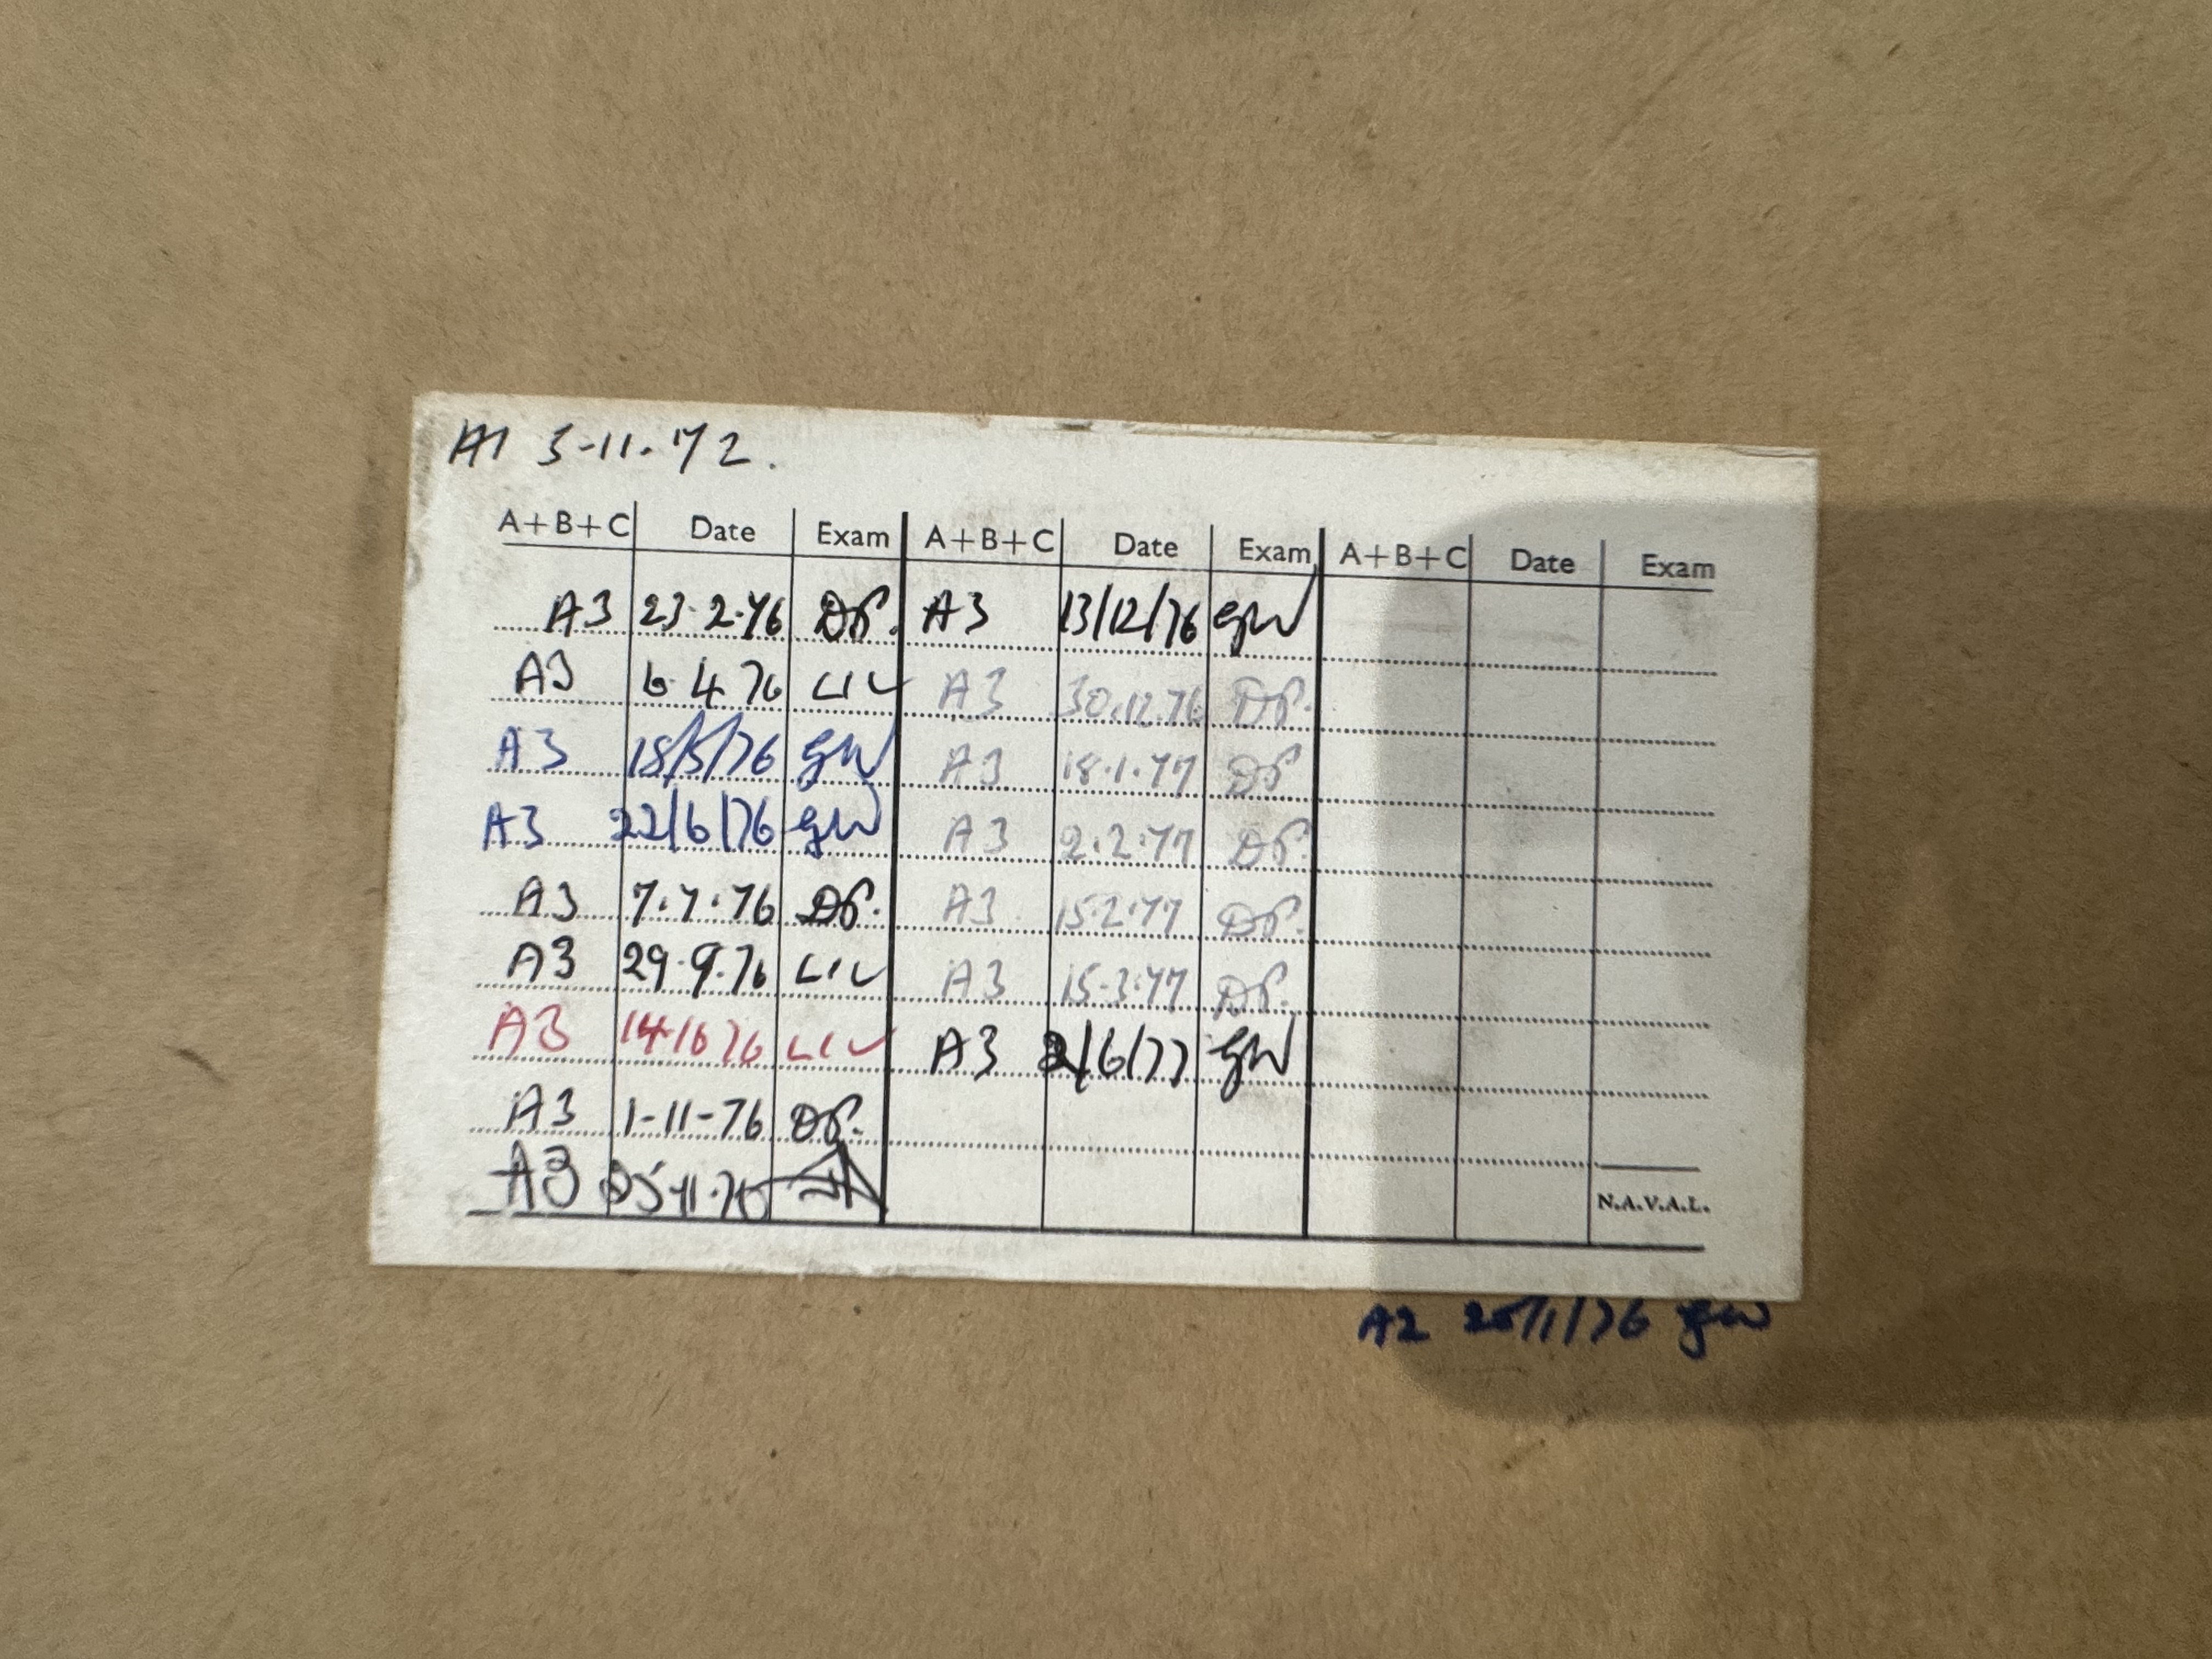 A1 3-11.72.
A+B+C Date Exam A+B+C Date Exam A+B+C Date Exam
A3 23.2.76 DP. A3 13/12/76 GW
A3 6.4.76 LIV A3 30.12.76 DP.
A3 18/5/76 GW A3 18.1.77 DP
A3 22/6/76 GW A3 2.2.77 DP.
A3 7.7.76 DP. A3 15.2.77 DP.
A3 29.9.76 LIV A3 15.3.77 DP.
A3 14 10 76 LIV A3 2/6/77 GW
A3 1-11-76 DP.
A3
N.A.V.A.L.
A2 /1/76 GW